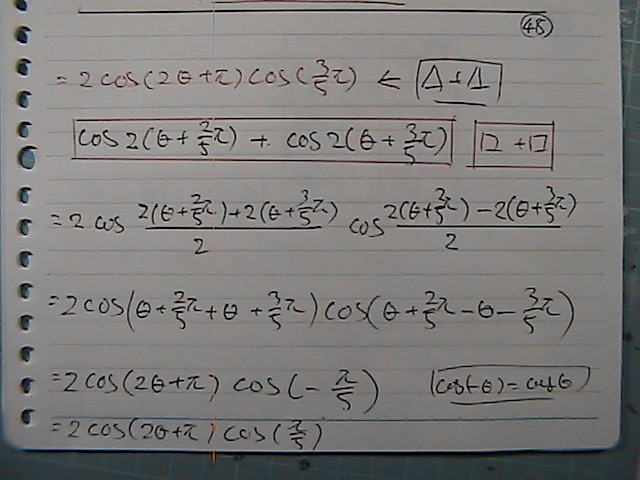 48
= 2 cos(2θ+π) cos(3/5 π) ← Δ+Δ
cos 2(θ+2/5 π) + cos 2(θ+3/5 π) □+□
= 2 cos (2(θ+2/5 π)+2(θ+3/5 π))/2 cos (2(θ+2/5 π)-2(θ+3/5 π))/2
= 2 cos(θ+2/5 π+θ+3/5 π) cos(θ+2/5 π-θ-3/5 π)
= 2 cos(2θ+π) cos(-π/5) (cos(-θ)=cosθ)
= 2 cos(2θ+π) cos(π/5)